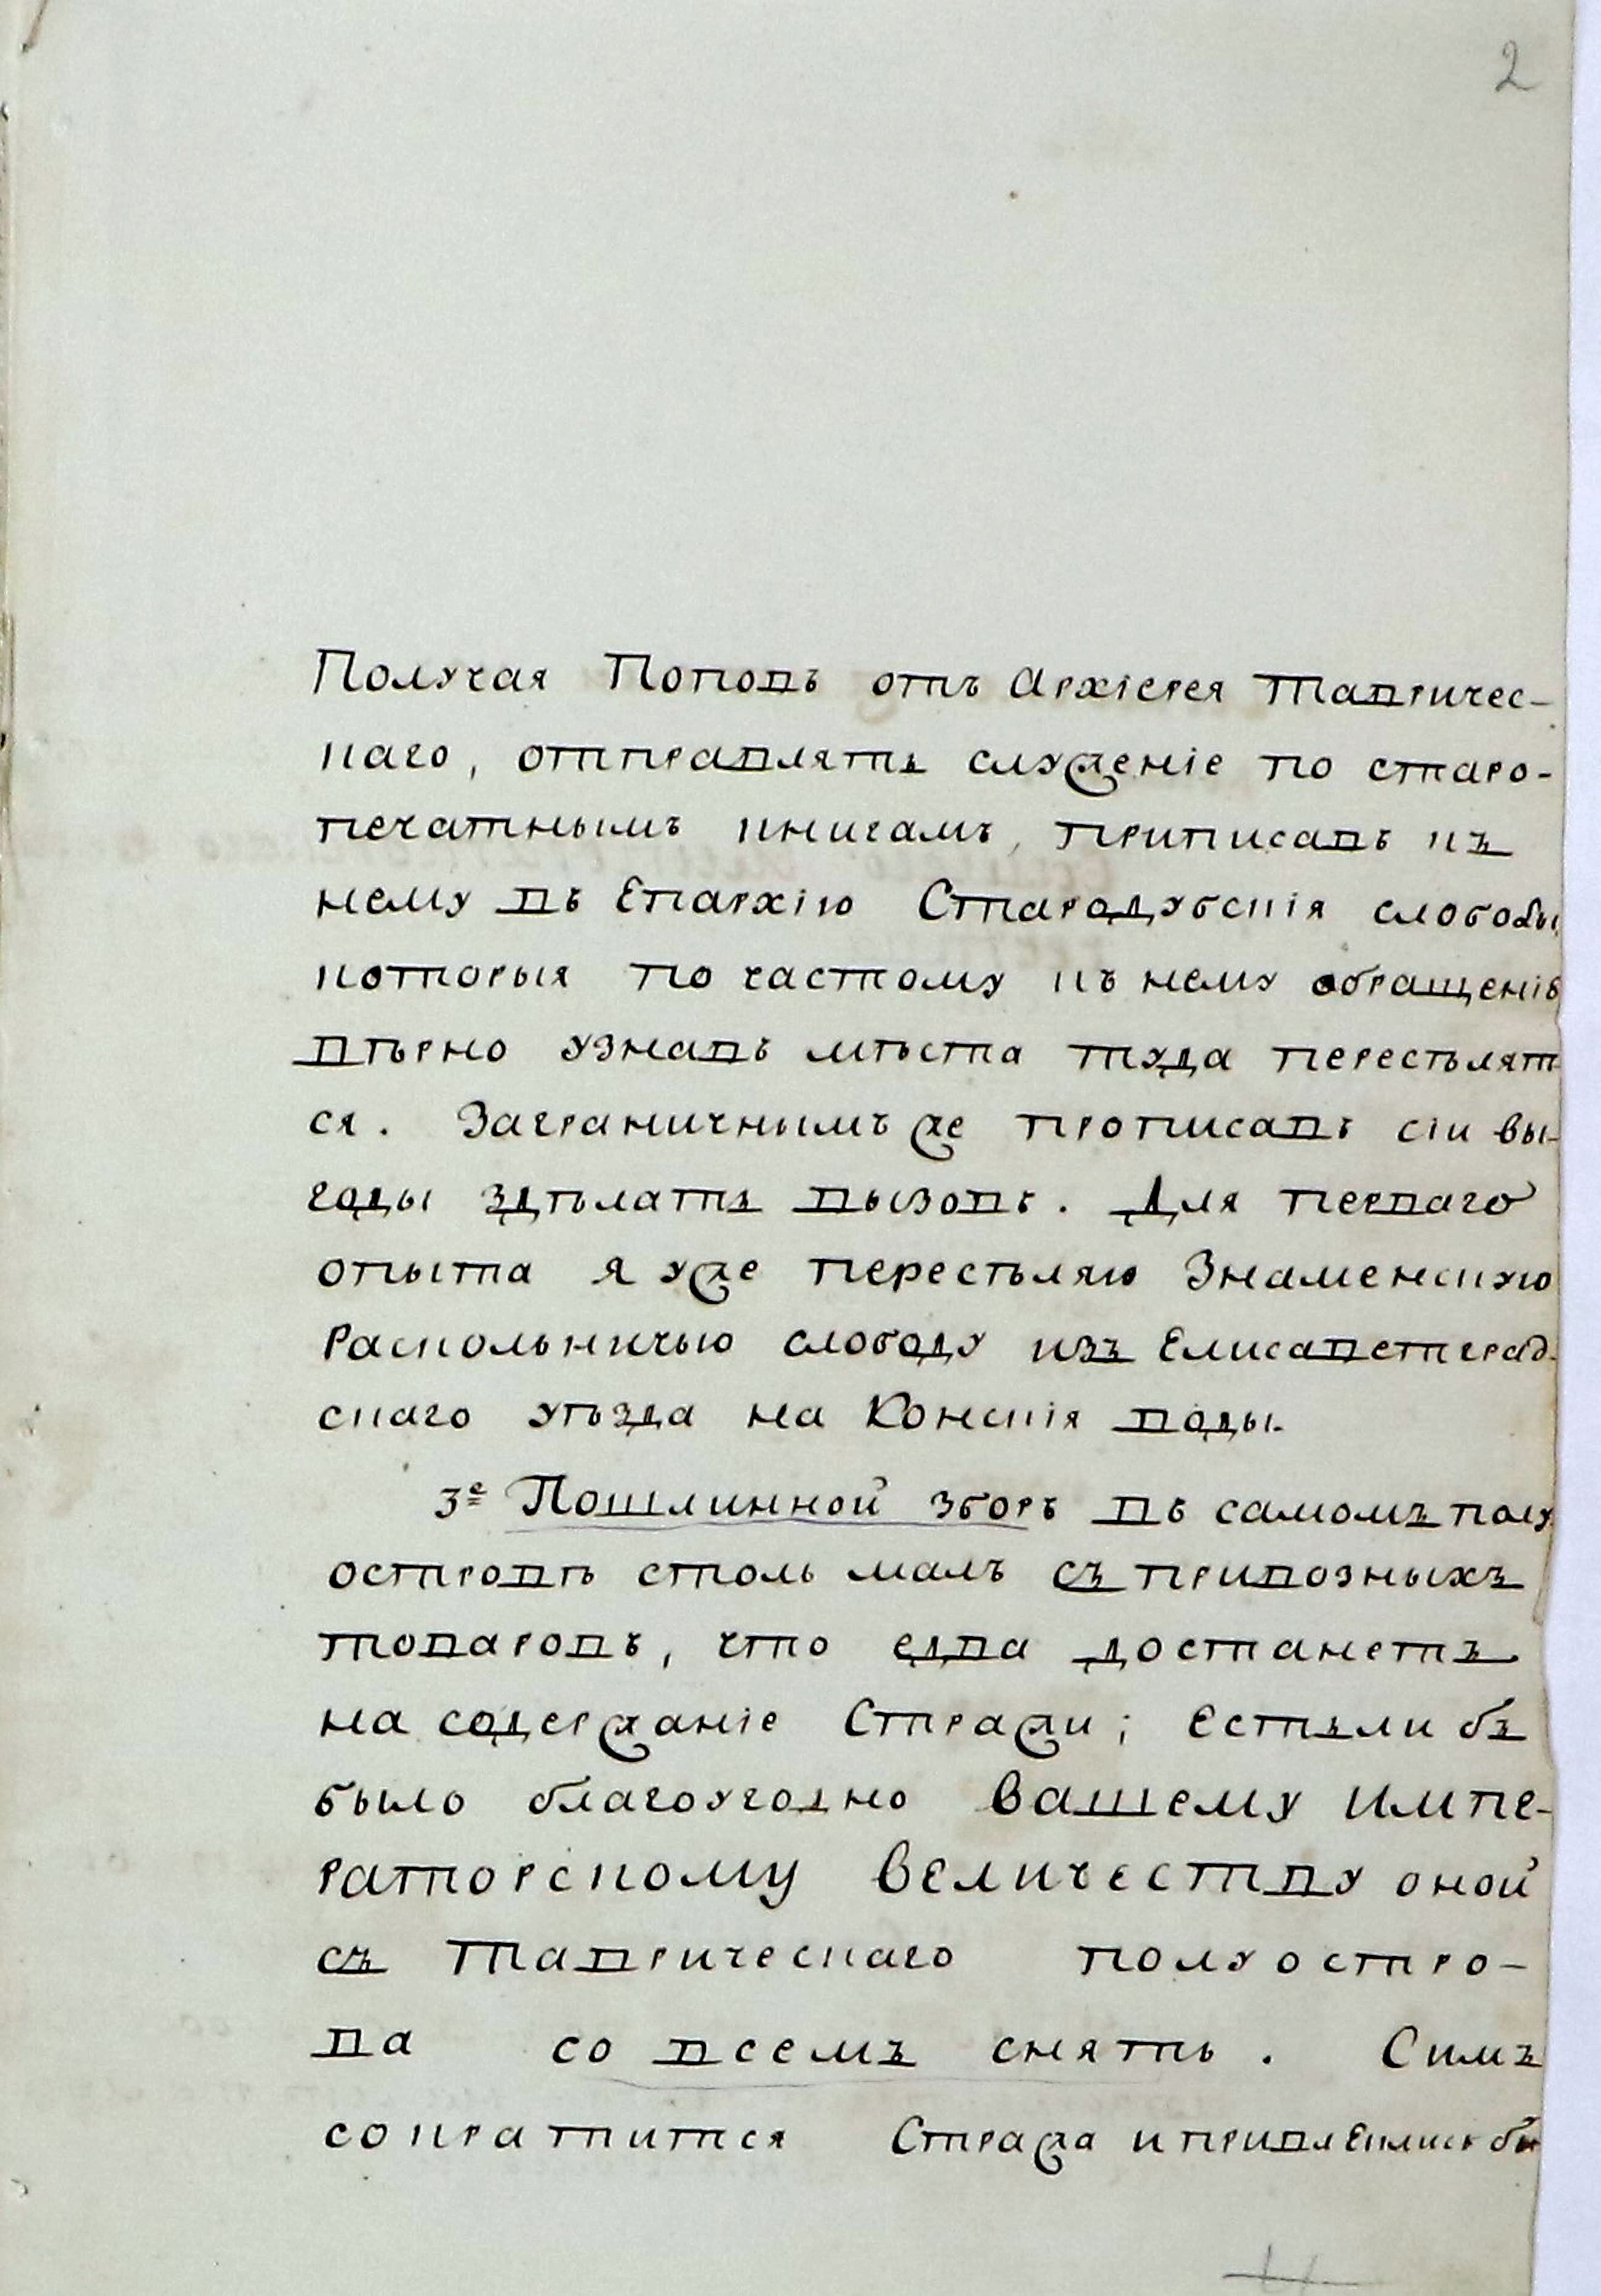 2
Получая Поповъ отъ Архіерея Тавричес-
каго, отправлять служеніе по старо-
печатнымъ книгамъ, приписавъ къ
нему въ Епархію Стародубскія слободы
которыя по частому къ нему обращенію
вѣрно узнавъ мѣста туда пересѣлят
ся. Заграничнымъ же прописавъ сіи вы-
годы здѣлать вызовъ. Для перваго
опыта я уже пересѣляю Знаменскую
Раскольничью слободу изъ Елисаветград-
скаго уѣзда на Конскія воды.
3е Пошлинной зборъ въ самомъ полу
островѣ столь малъ съ привозныхъ
товаровъ, что едва достанетъ
на содержаніе Стражи; естьли бъ
было благоугодно Вашему Импе-
раторскому Величеству оной
съ Таврическаго полуостро-
ва со всемъ снять. Симъ
сократится Стража и привлеклись бы